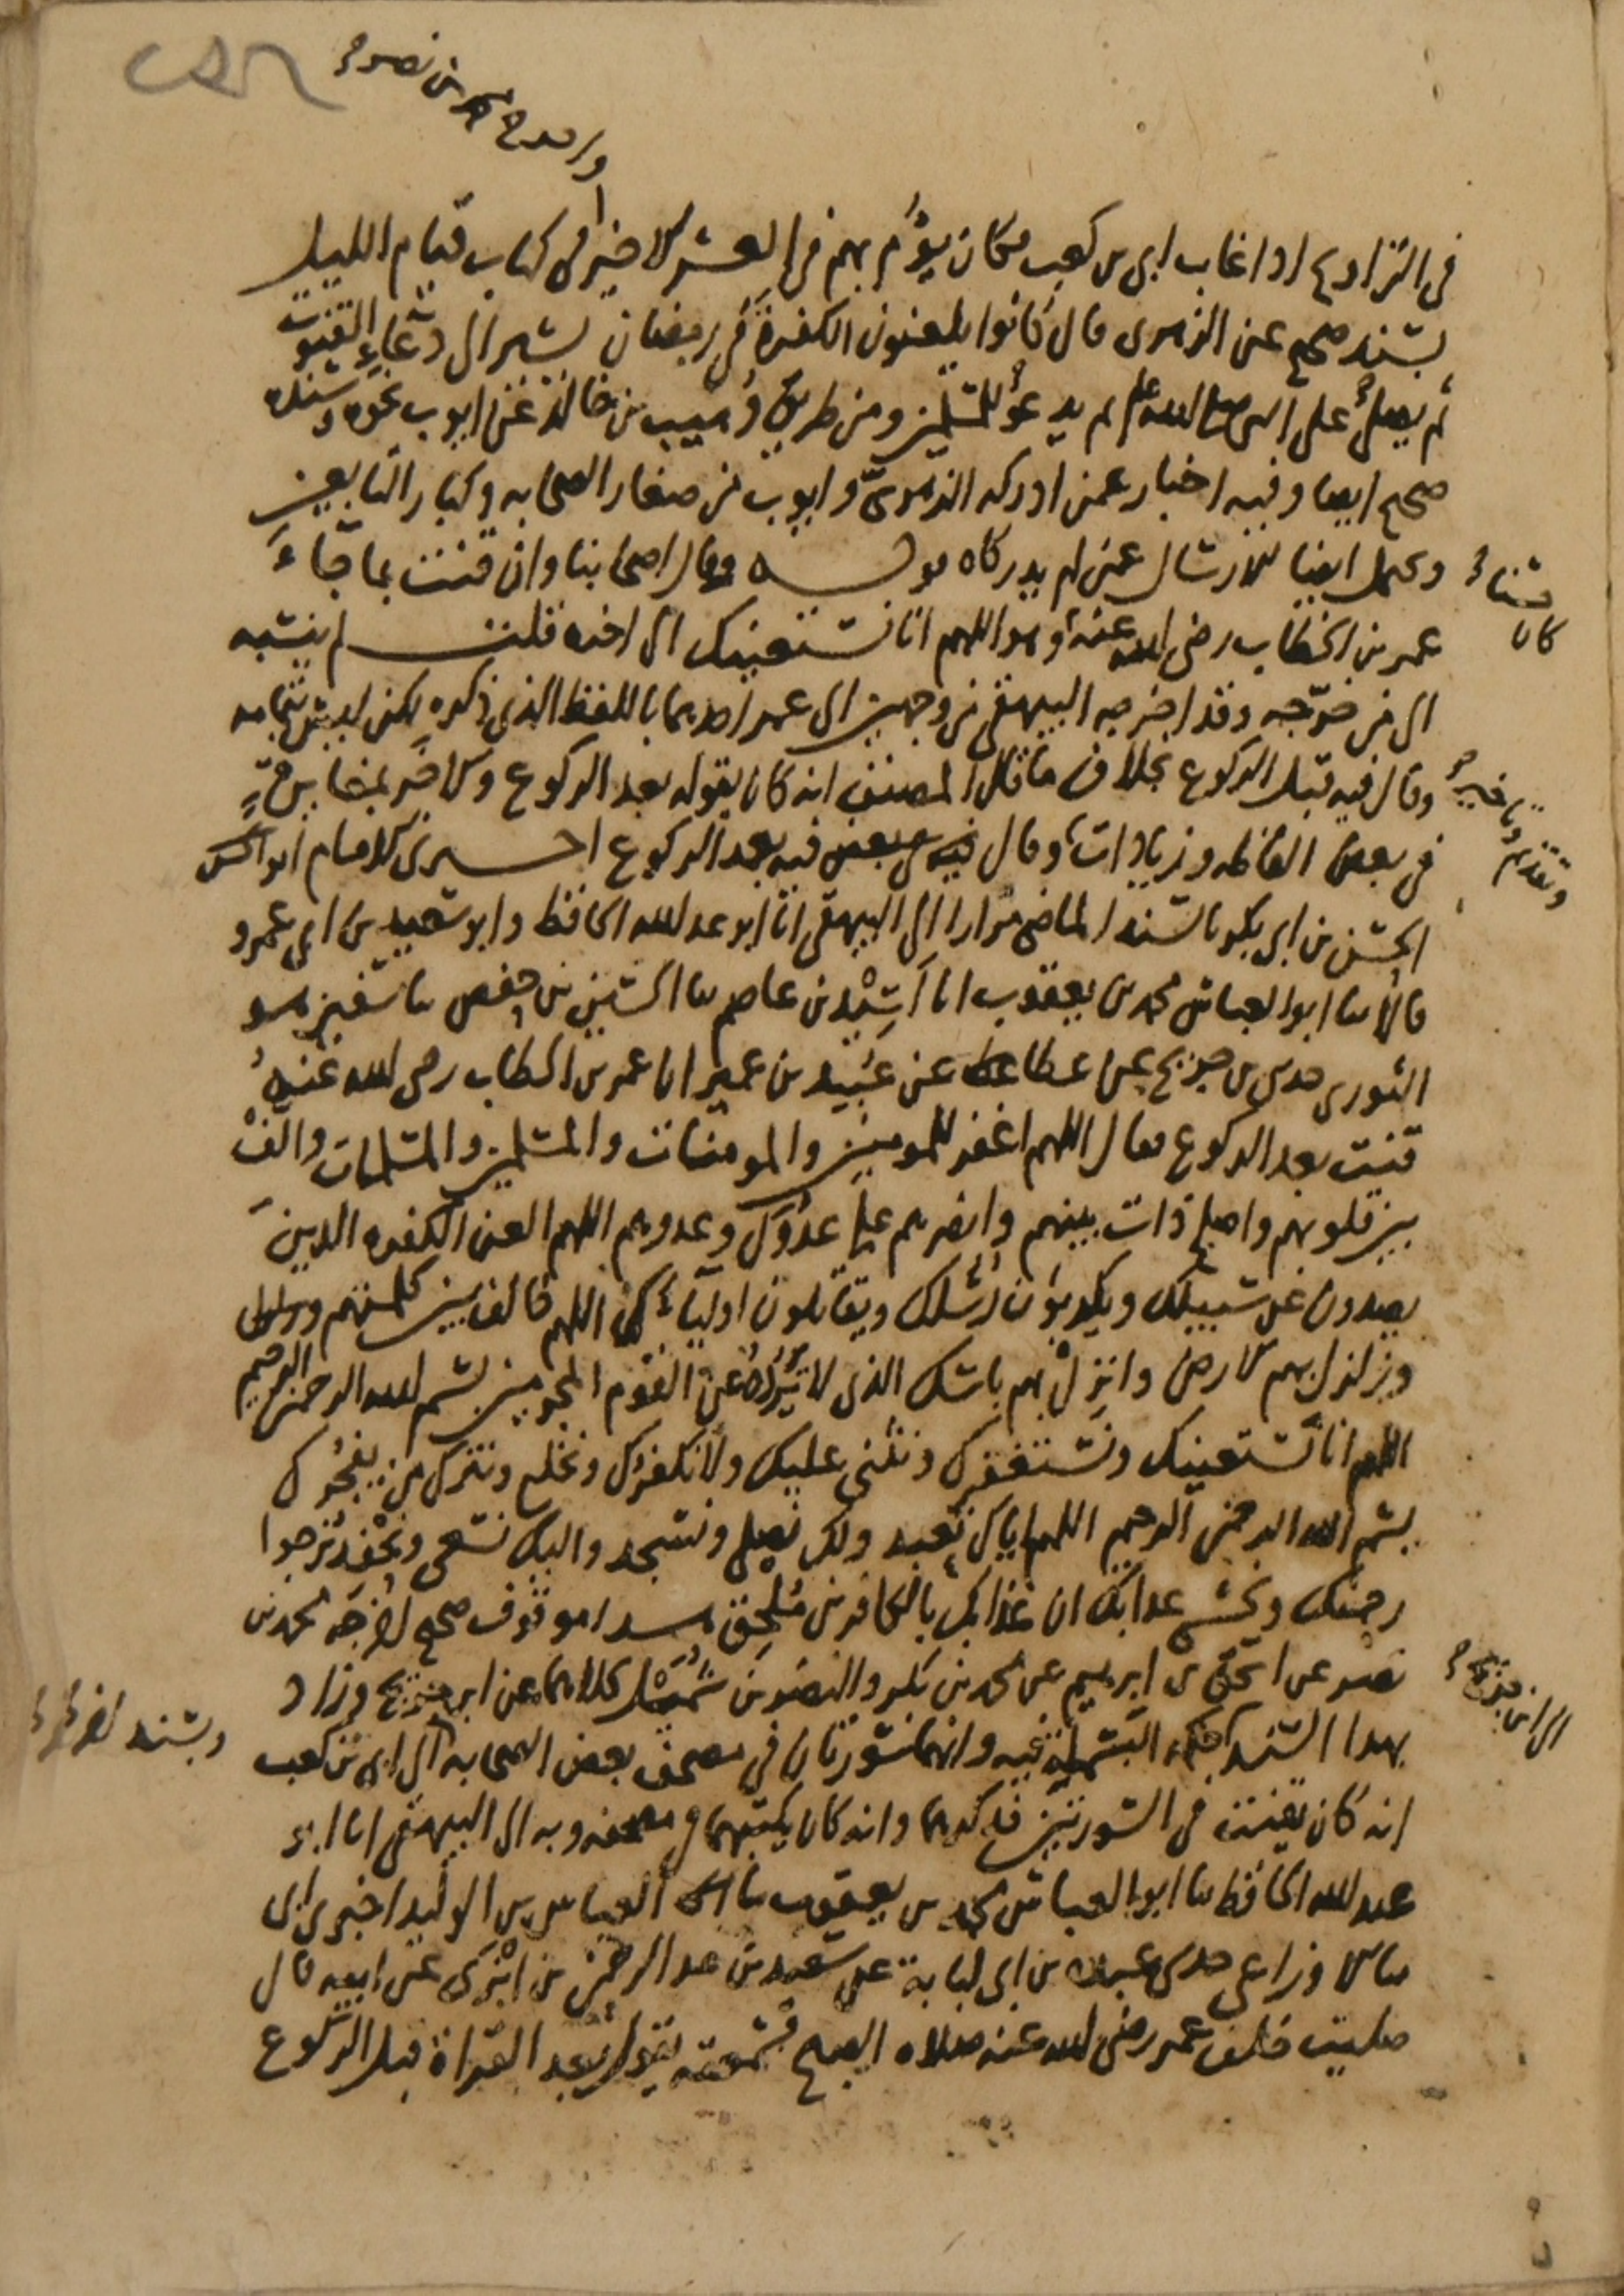 واخرج محمد بن نصر
في التراويح اذا غاب ابي بن كعب فكان يؤم بهم في العشر الاخير في كتاب قيام الليل
بسند صحيح عن الزهري قال كانوا يلعنون الكفرة في رمضان يشير الى دعاء القنوت
ثم يصلي على النبي صلى الله عليه وسلم ثم يدعو للمسلمين ومن طريق وهيب بن خالد عن ايوب نحوه وسنده
صحيح ايضا وفيه اخبار عمن ادركه الزهري وايوب من صغار الصحابة وكبار التابعين
ويحمل ايضا للارسال عمن لم يدركاه قوله وقال اصحابنا وان قنت بما جاء
عمر بن الخطاب رضي الله عنه وهو اللهم انا نستعينك الى اخره قلت لم ينسبه
الى من خرجه وقد اخرجه البيهقي من وجهين الى عمر احدهما باللفظ الذي ذكره لكن ليس بتمامه
وقال فيه قبل الركوع بخلاف ما نقل المصنف انه كان يقوله بعد الركوع والاخر بمغايرة
في بعض الفاظه وزيادات وقال فيه بعد الركوع اخبرني الامام ابو الحسن
الحسن بن ابي بكر بالسند الماضي مرارا الى البيهقي انا ابو عبد الله الحافظ وابو سعيد بن ابي عمرو
قالا ثنا ابو العباس محمد بن يعقوب انا اسيد بن عاصم ثنا الحسين بن حفص ثنا سفين هو
الثوري حدثني بن جريج عن عطا عن عبيد بن عمير ان عمر بن الخطاب رضي الله عنه
قنت بعد الركوع فقال اللهم اغفر للمومنين والمومنات والمسلمين والمسلمات والف
بين قلوبهم واصلح ذات بينهم وانصرهم على عدوك وعدوهم اللهم العن الكفره الذين
يصدون عن سبيلك ويكذبون رسلك ويقاتلون اوليائك اللهم خالف بين كلمتهم
وزلزل بهم الارض وانزل بهم باسك الذي لا ترده عن القوم المجرمين بسم الله الرحمن الرحيم
اللهم انا نستعينك ونستغفرك ونثني عليك ولا نكفرك ونخلع ونترك من يفجرك
بسم الله الرحمن الرحيم اللهم اياك نعبد ولك نصلي ونسجد واليك نسعى ونحفد نرجوا
رحمتك ونخشى عذابك ان عذابك بالكافرين ملحق هذا موقوف صحيح اخرجه محمد بن
نصر عن اسحق بن ابرهيم عن محمد بن بكر والنضر بن شميل كلاهما عن ابن جريج وزاد
بهذا السند حكمة البسملة فيه وانهما سورتان في مصحف بعض الصحابه الى ابي بن كعب
انه كان يقنت في السورتين فذكرهما وانه كان يكتبهما في مصحفه وبه الى البيهقي انا ابو
عبد الله الحافظ ثنا ابو العباس محمد بن يعقوب ثنا العباس بن الوليد اخبرني ابي
ثنا الاوزاعي حدثني عبدة بن ابي لبابة عن سعيد بن عبد الرحمن بن ابزى عن ابيه قال
صليت خلف عمر رضي الله عنه صلاه الصبح فسمعته يقول بعد القراة قبل الركوع
كان حسنا
وتقديم وتاخير
الى ابن جريج
وبسند اخر